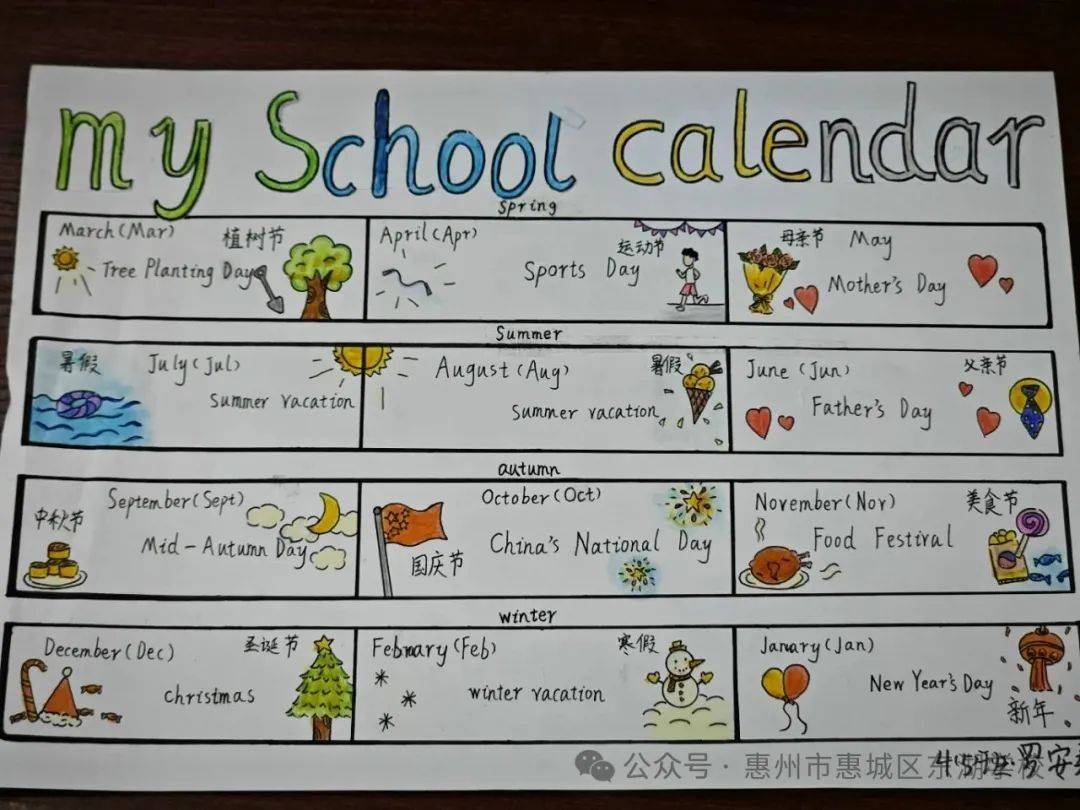 my School calendar
Spring
March(Mar)
植树节
Tree Planting Day
April(Apr)
运动节
Sports Day
母亲节
May
Mother's Day
Summer
暑假
July(Jul)
summer vacation
August(Aug)
暑假
summer vacation
June(Jun)
父亲节
Father's Day
autumn
September(Sept)
中秋节
Mid-Autumn Day
October(Oct)
China's National Day
国庆节
November(Nov)
美食节
Food Festival
winter
December(Dec)
圣诞节
christmas
February(Feb)
寒假
winter vacation
January(Jan)
New Year's Day
新年
罗安
公众号·惠州市惠城区东湖学校